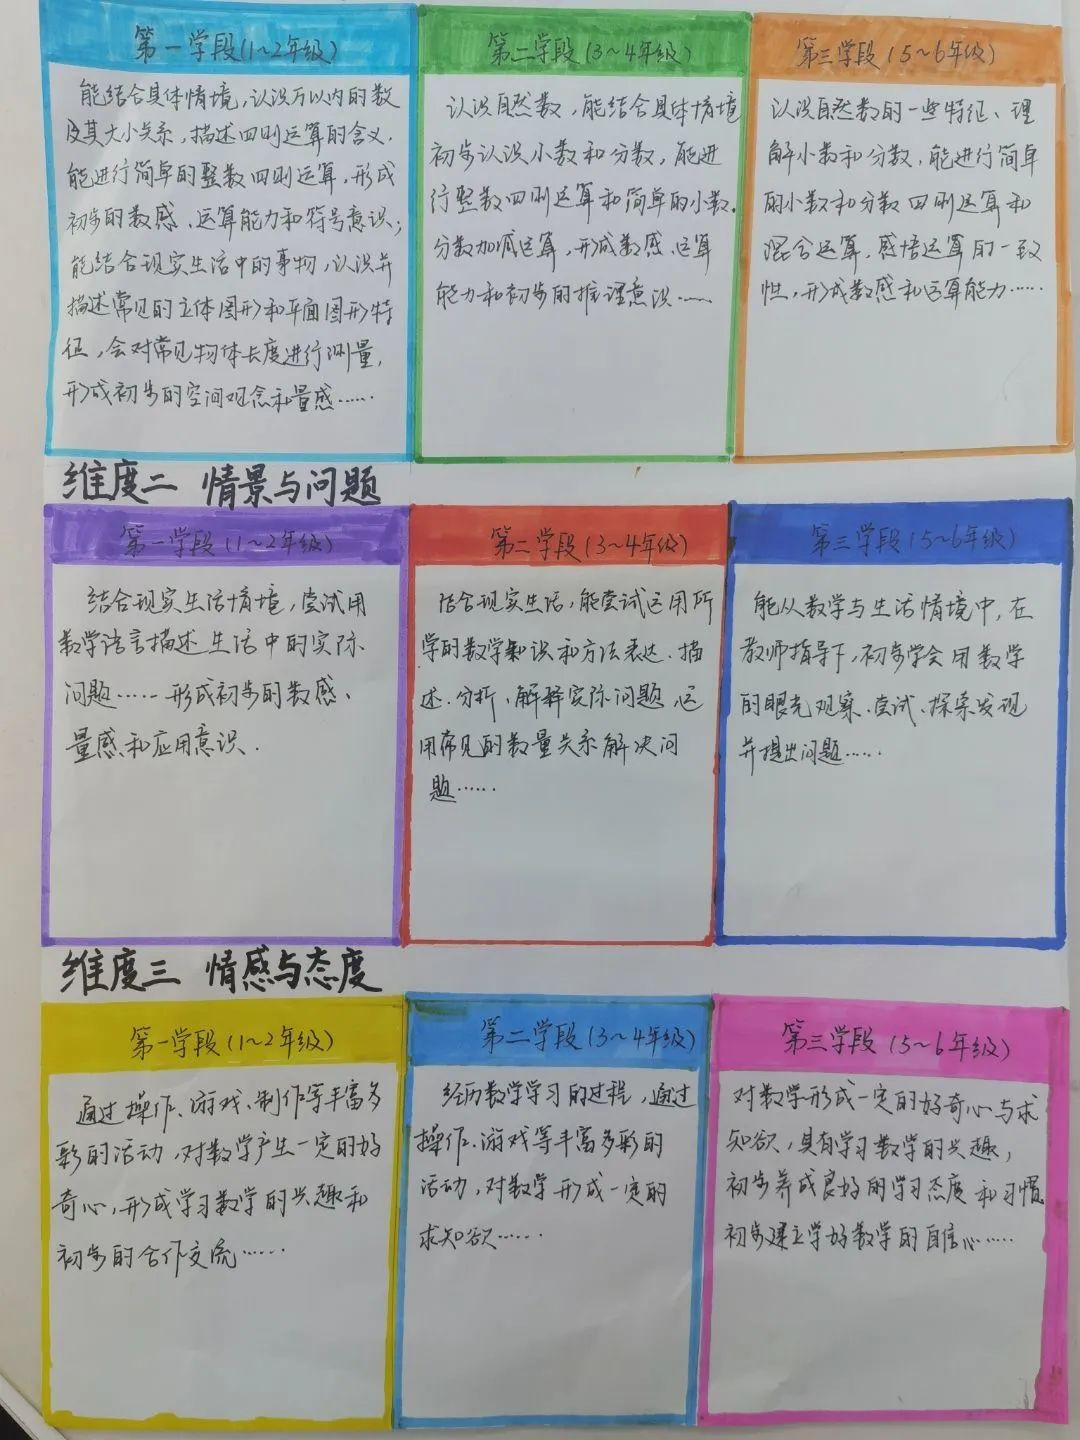 第一学段(1~2年级)
能结合具体情境,认识万以内的数
及其大小关系,描述四则运算的含义.
能进行简单的整数四则运算,形成
初步的数感、运算能力和符号意识;
能结合现实生活中的事物,认识并
描述常见的立体图形和平面图形特
征,会对常见物体长度进行测量,
形成初步的空间观念和量感……
第二学段(3~4年级)
认识自然数,能结合具体情境
初步认识小数和分数,能进
行整数四则运算和简单的小数.
分数加减运算,形成数感、运算
能力和初步的推理意识……
第三学段(5~6年级)
认识自然数的一些特征、理
解小数和分数,能进行简单
的小数和分数四则运算和
混合运算,感悟运算的一致
性,形成数感和运算能力……
维度二 情景与问题
第一学段(1~2年级)
结合现实生活情境,尝试用
数学语言描述生活中的实际
问题……形成初步的数感、
量感和应用意识.
第二学段(3~4年级)
结合现实生活,能尝试运用所
学的数学知识和方法表达、描
述、分析、解释实际问题,运
用常见的数量关系解决问
题……
第三学段(5~6年级)
能从数学与生活情境中,在
教师指导下,初步学会用数学
的眼光观察、尝试、探索发现
并提出问题……
维度三 情感与态度
第一学段(1~2年级)
通过操作、游戏、制作等丰富多
彩的活动,对数学产生一定的好
奇心,形成学习数学的兴趣和
初步的合作交流……
第二学段(3~4年级)
经历数学学习的过程,通过
操作、游戏等丰富多彩的
活动,对数学形成一定的
求知欲……
第三学段(5~6年级)
对数学形成一定的好奇心与求
知欲,具有学习数学的兴趣,
初步养成良好的学习态度和习惯.
初步建立学好数学的自信心……